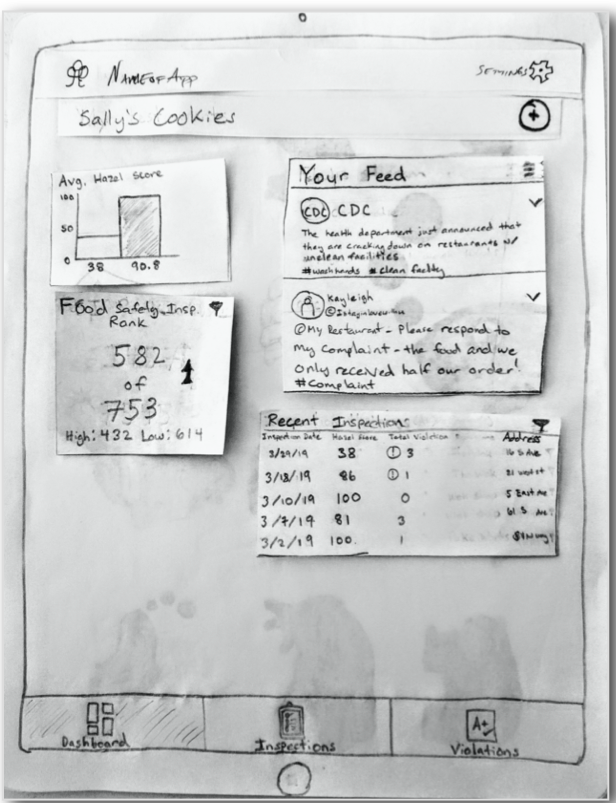 Name of App
Settings
Sally's Cookies
Avg. Hazel Score
100
50
0
38 90.8
Food Safety Insp.
Rank
582
of
753
High: 432 Low: 614
Your Feed
CDC CDC
The health department just announced that
they are cracking down on restaurants w/
unclean facilities
#washhands #clean facility
Kayleigh
@My Restaurant - Please respond to
my complaint - the food and we
only received half our order!
#Complaint
Recent Inspections
Inspection Date Hazel Score Total Violation Address
3/29/19 38 ! 3 16 S Ave
3/18/19 86 ! 1 21 west st
3/10/19 100 0 5 East Ave
3/7/19 81 3 61 S Ave
3/2/19 100 1
Dashboard
Inspections
A+
Violations